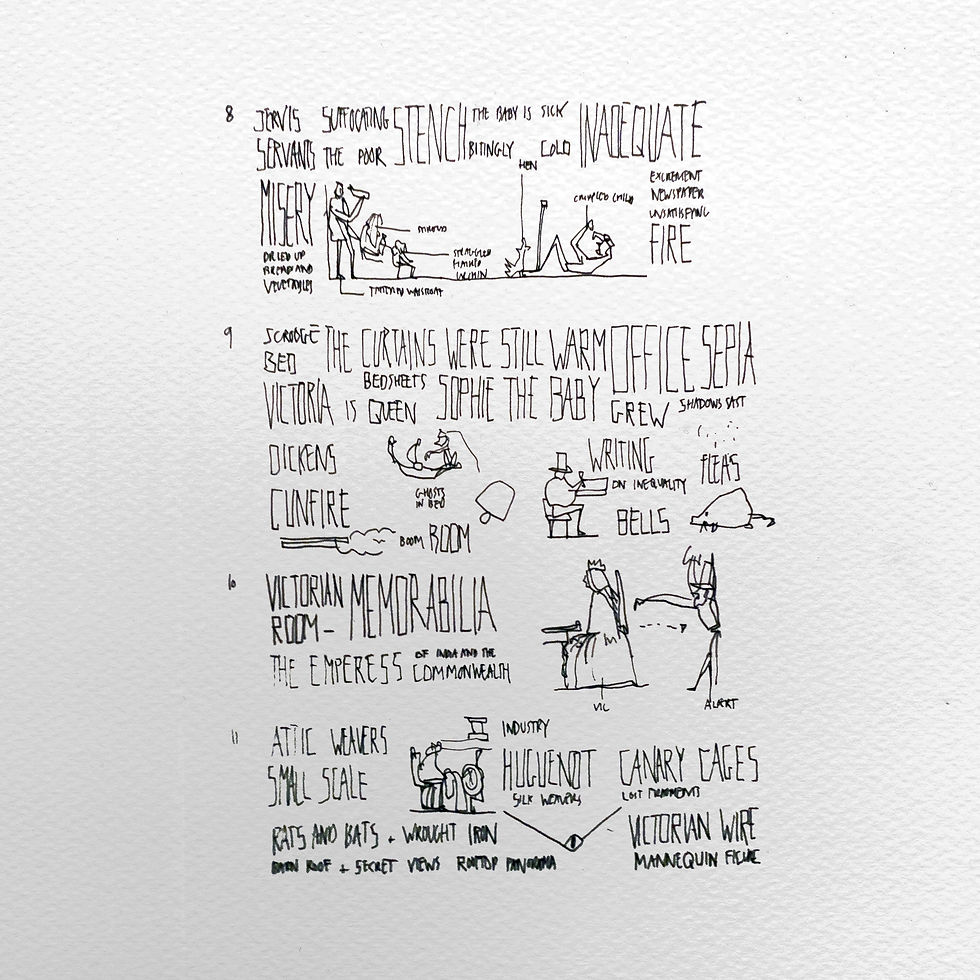 8 JERVIS SUFFOCATING STENCH THE BABY IS SICK INADEQUATE
SERVANTS THE POOR BITINGLY COLD
HEN
MISERY
DRIED UP
BREAD AND
VEGETABLES
CRIPPLED CHILD
EXCREMENT
NEWSPAPER
UNSATISFYING
FIRE
TATTERED WAISTCOAT
9 SCROOGE THE CURTAINS WERE STILL WARM OFFICE SEPIA
BED
VICTORIA IS QUEEN BEDSHEETS SOPHIE THE BABY GREW SHADOWS CAST
DICKENS
GHOSTS
IN BED
WRITING
ON INEQUALITY
FLEAS
GUNFIRE
BOOM BOOM
BELLS
10 VICTORIAN MEMORABILIA
ROOM –
THE EMPERESS OF INDIA AND THE
COMMONWEALTH
VIC
ALBERT
11 ATTIC WEAVERS
SMALL SCALE
INDUSTRY
HUGUENOT
SILK WEAVERS
CANARY CAGES
LOST FRAGMENTS
RATS AND BATS + WROUGHT IRON
VICTORIAN WIRE
MANNEQUIN FIGURE
BARN ROOF + SECRET VIEWS ROOFTOP PANORAMA